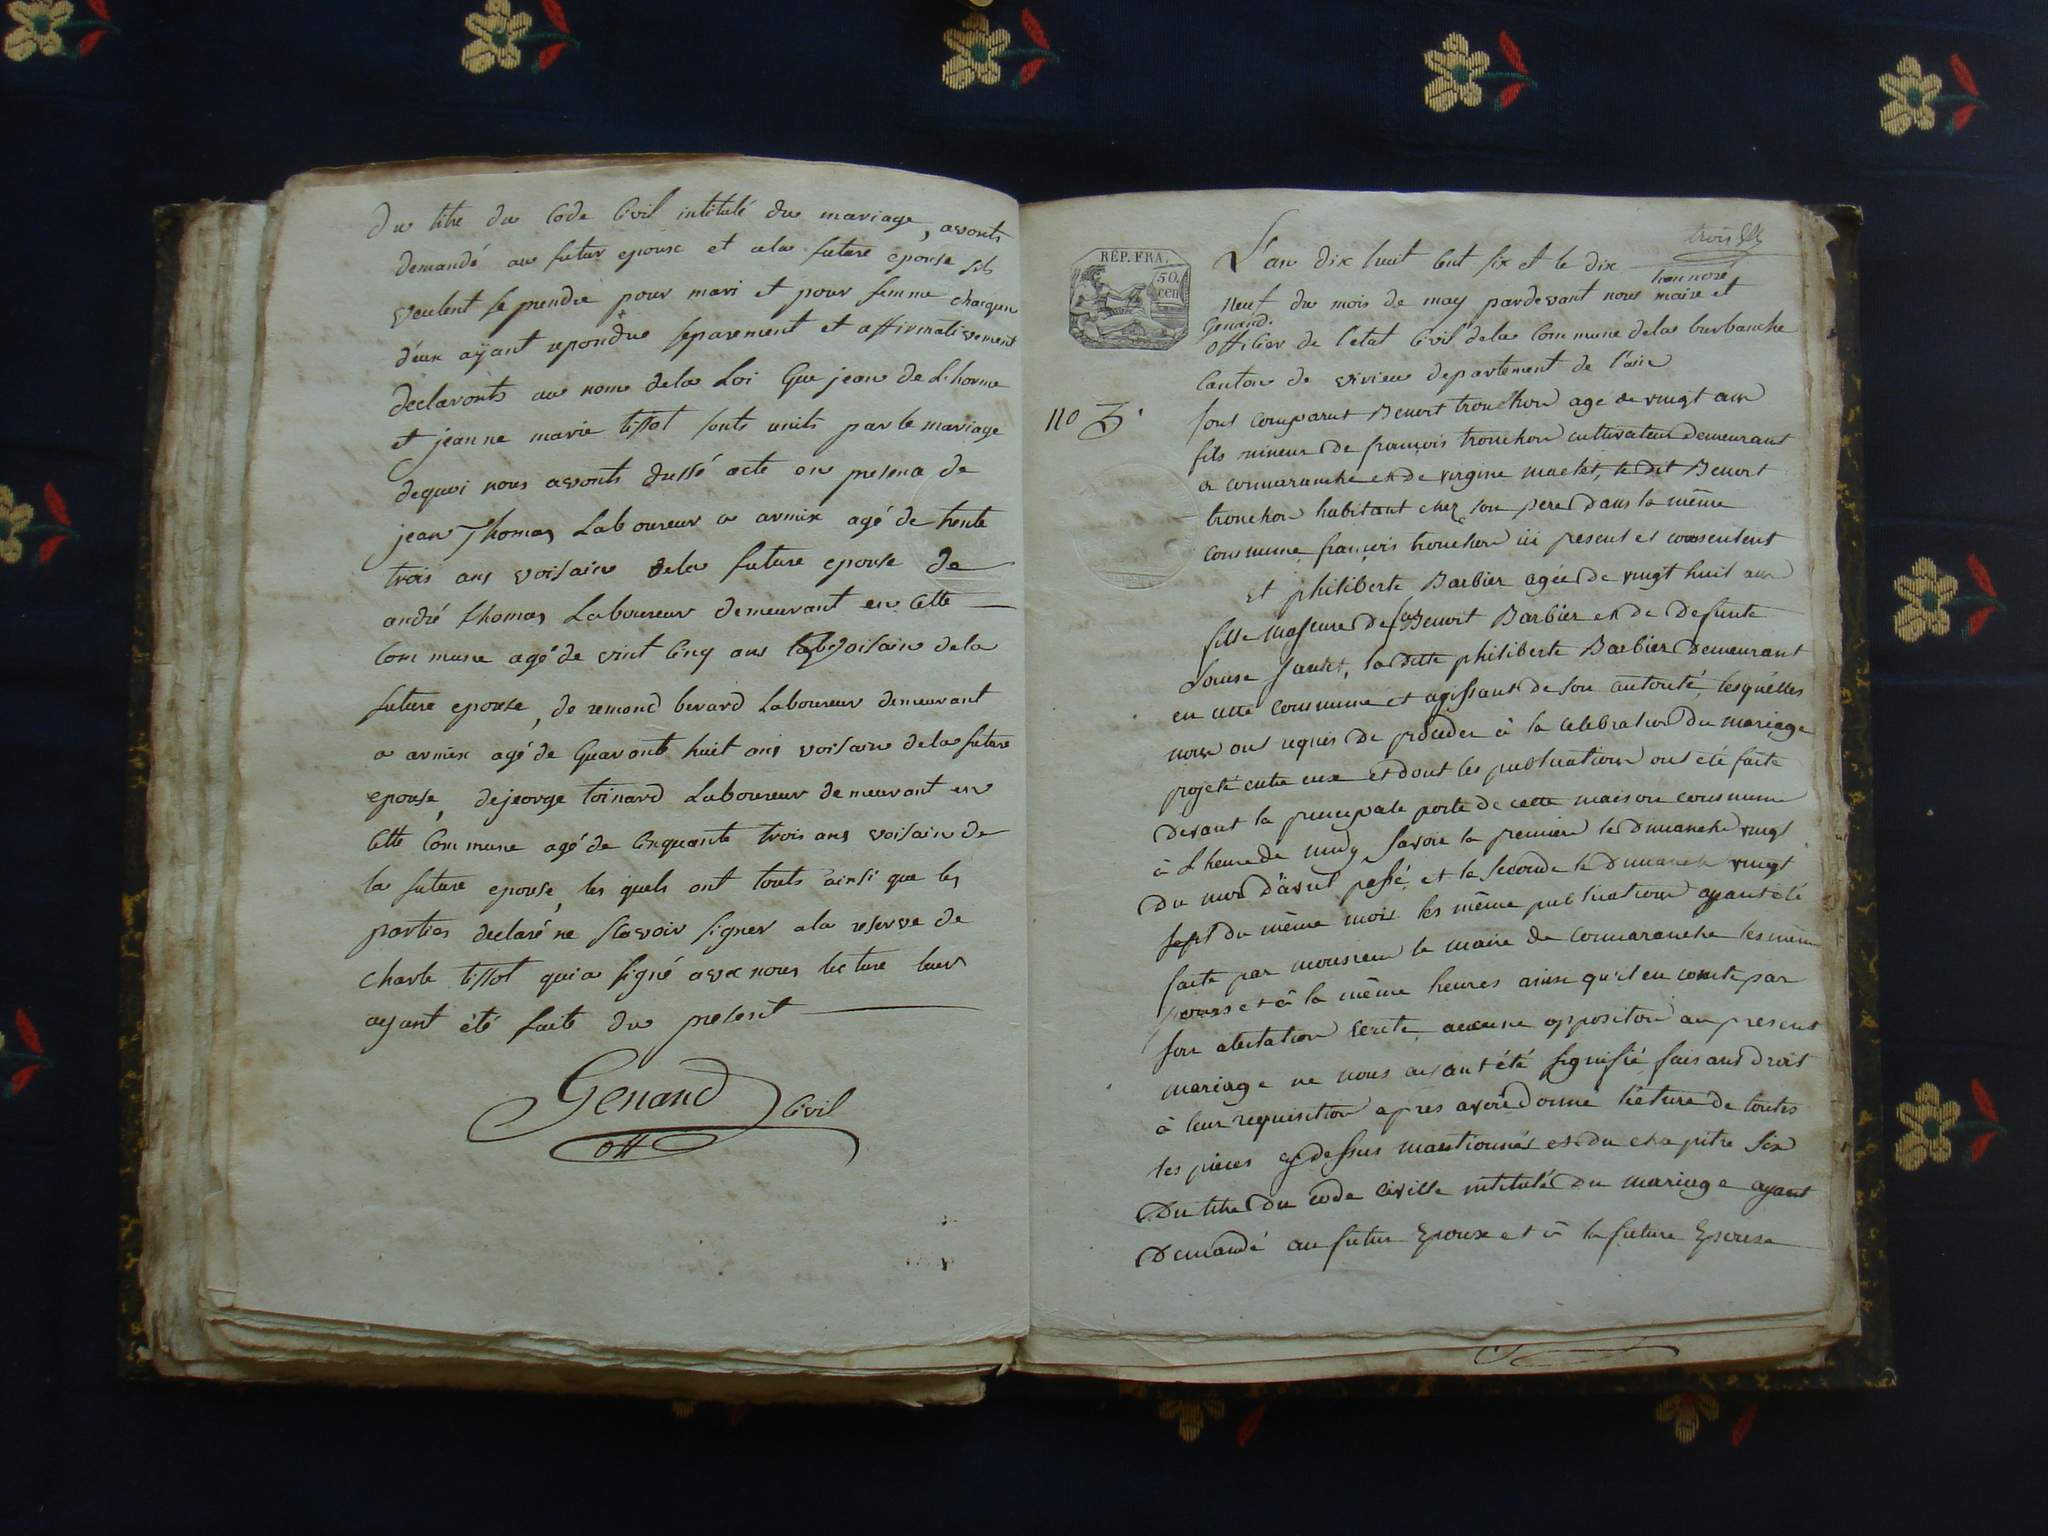 Du titre du Code Civil intitulé du mariage, avonts
demandé au futur epoux et ala future epouse sils
veulent se prendre pour mari et pour femme chacquen
d'eux aÿant repondue separement et affirmativement
declavonts au nom dela Loi Que jean de Lhorme
et jeanne marie tissot sonts units par le mariage
dequoi nous avonts dussé acte en presena de
jean Thomas Laboureur a armix agé de trente
trois ans voisain dela future epouse de
andré thomas Laboureur demeurant en Cette
Commune agé de vint Cinq ans voisain dela
future epouse, de remond berard Laboureur demeurant
a armix agé de Quarante huit ans voisain dela future
epouse, dejeorge toinard Laboureur demeurant en
Cette Commune agé de Cinquante trois ans voisain de
la future epouse, les quels ont touts ainsi que les
parties declaré ne scavoir signer ala reserve de
Charle tissot qui a signé avec nous lecture leur
ayant été faite du present
Genand
off Civil
trois
RÉP. FRA.
50.
cen
L'an dix huit Cent six et le dix
neuf du mois de may pardevant nous honnoré maire et
Genand.
officier de l'etat Civil dela Commune dela burbanche
Canton de virieu departement de l'ain
no 3.
sont comparut Benoit trouchon age de vingt ans
fils mineur de françois trouchon cultivateur demeurant
a connaranche et de virgine maclet, le dit Benoit
trouchon habitant chez son pere dans la même
commune françois trouchon ici present et consentent
Et philiberte Barbier agée de vingt huit ans
fille majeure de feu Benoit Barbier et de defunte
Louise Jantet, la ditte philiberte Barbier demeurant
en cette commune et agissant de son autorité, lesquelles
nous ont requis de proceder à la celebration du mariage
projeté entre eux et dont les publications ont été faite
devant la principale porte de cette maison commune
à L'heure de midy savoir la premiere le dimanche vingt
du mois d'avril passé, et la seconde le dimanche vingt
sept du même mois les même publications ayant été
faite par monsieur le maire de connaranche les même
jours et à la même heures ainsi qu'il en conste par
son atestation ecrite, aucune opposition au present
mariage ne nous ayant été signifié faisant droit
à leur requisition apres avoir donné lecture de toutes
les pieces cy dessus mantionnés et du chapitre six
Du titre du code civille intitulé Du mariage ayant
Demandé au futur Epoux et à la future Epouse